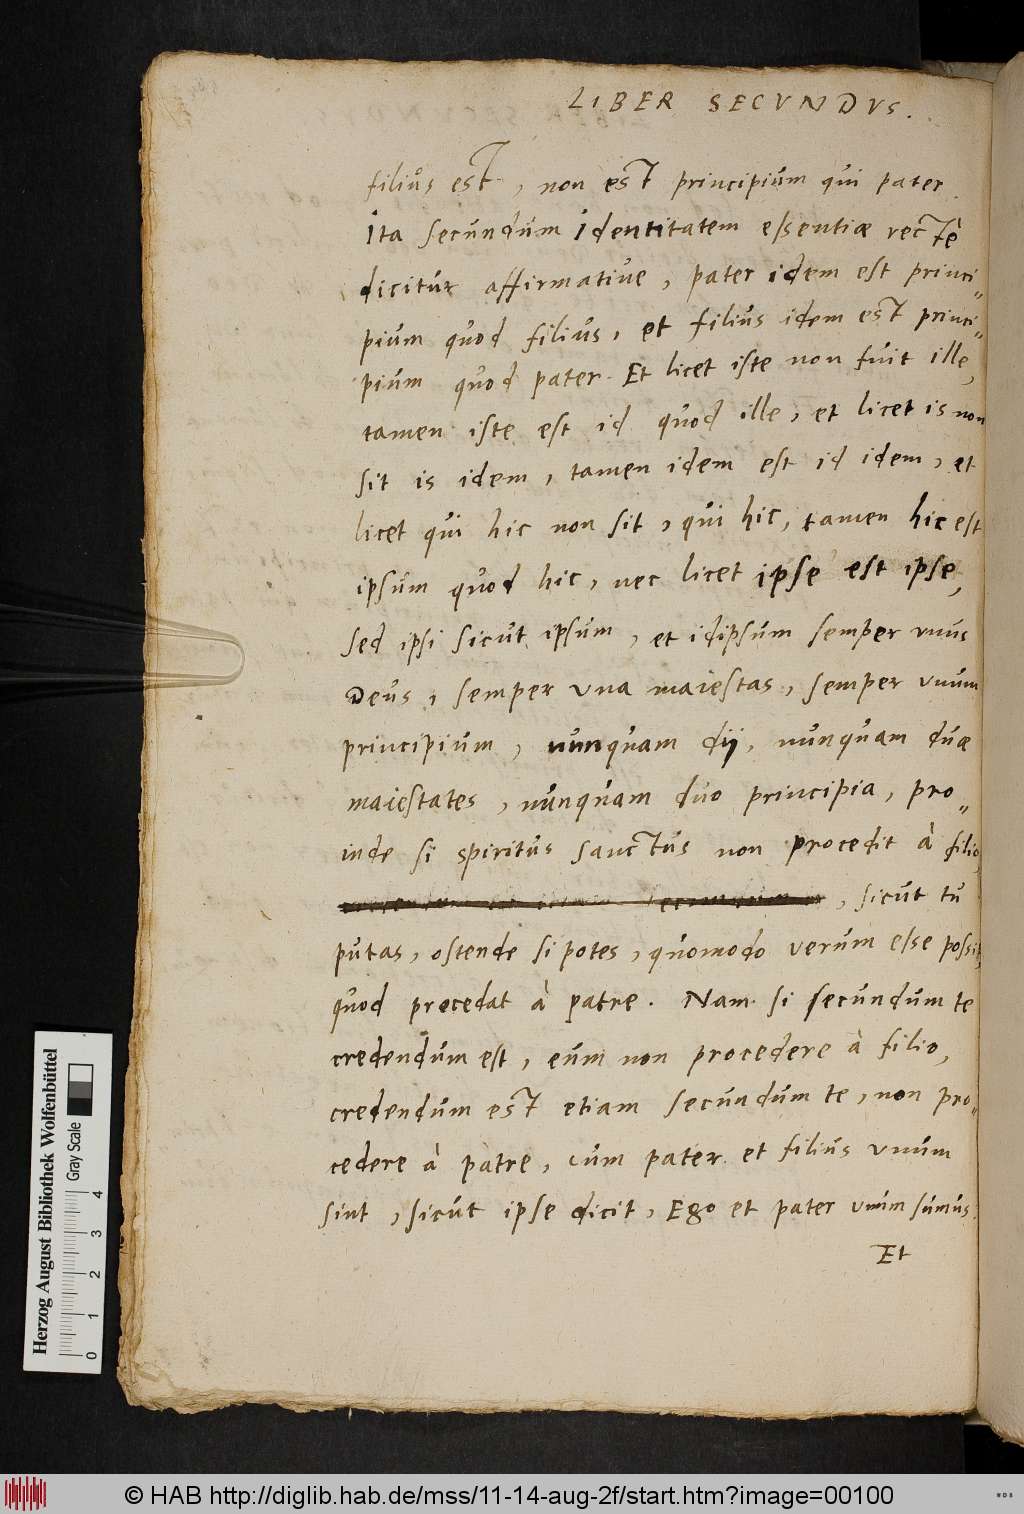 LIBER SECVNDVS.
filius est, non est principium qui pater.
Ita secundum identitatem essentiæ rectè
dicitur affirmative, pater idem est princi„
pium quod filius, et filius idem est princi„
pium quod pater. Et licet iste non fuit ille,
tamen iste est id quod ille, et licet is non
sit is idem, tamen idem est id idem, et
licet qui hic non sit, qui hic, tamen hic est
ipsum quod hic, nec licet ipse est ipse,
sed ipsi sicut ipsum, et idipsum semper vnus
Deus, semper vna maiestas, semper vnum
principium, nunquam dij, nunquam duæ
maiestates, nunquam duo principia, pro„
inde si spiritus sanctus non procedit à filio,
, sicut tu
putas, ostende si potes, quomodo verum esse possit,
quod procedat à patre. Nam si secundum te
credendum est, eum non procedere à filio,
credendum est etiam secundum te, non pro„
cedere à patre, cum pater et filius vnum
sint, sicut ipse dicit, Ego et pater vnum sumus.
Et
Herzog August Bibliothek Wolfenbüttel
Gray Scale
0 1 2 3 4
© HAB http://diglib.hab.de/mss/11-14-aug-2f/start.htm?image=00100